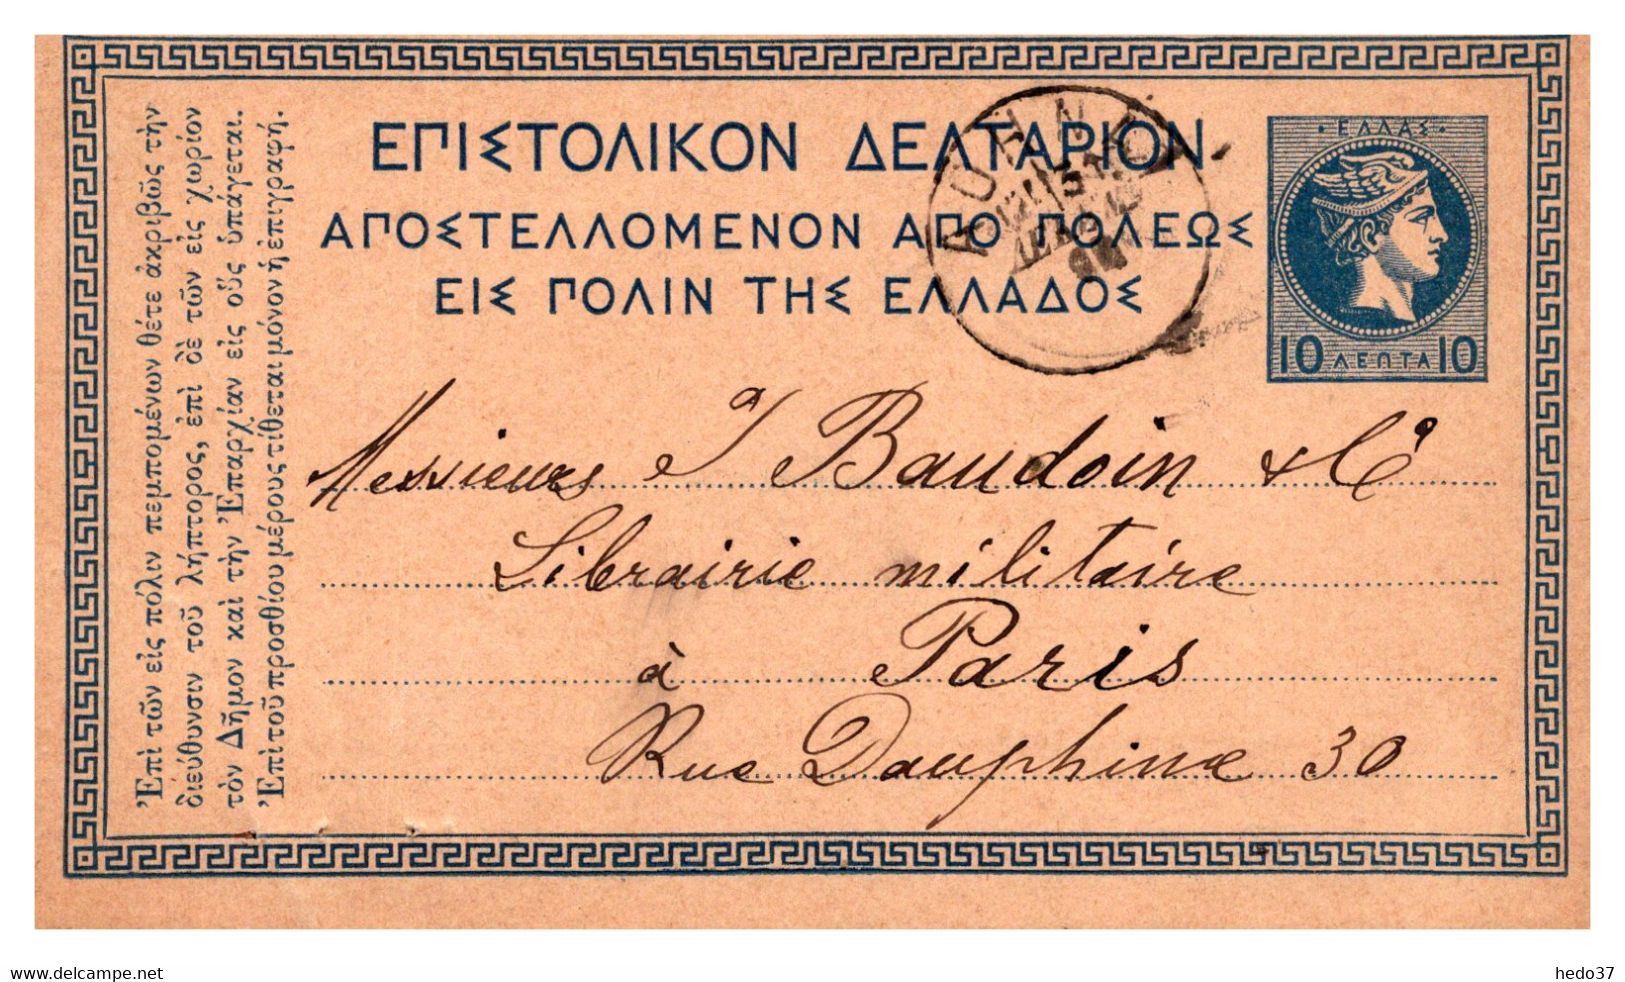 ΕΠΙΣΤΟΛΙΚΟΝ ΔΕΛΤΑΡΙΟΝ
ΑΠΟΣΤΕΛΛΟΜΕΝΟΝ ΑΠΟ ΠΟΛΕΩΣ
ΕΙΣ ΠΟΛΙΝ ΤΗΣ ΕΛΛΑΔΟΣ
·ΕΛΛΑΣ·
10 ΛΕΠΤΑ 10
Ἐπὶ τῶν εἰς πόλιν πεμπομένων θέτε ἀκριβῶς τὴν
διεύθυνσιν τοῦ λήπτορος, ἐπὶ δὲ τῶν εἰς χωρίον
τὸν Δῆμον καὶ τὴν Ἐπαρχίαν εἰς οὓς ὑπάγεται.
Ἐπὶ τοῦ προσθίου μέρους τίθεται μόνον ἡ ἐπιγραφή.
Messieurs J Baudoin & Cⁱᵉ
Librairie militaire
à Paris
Rue Dauphine 30
delcampe.net
hedo37